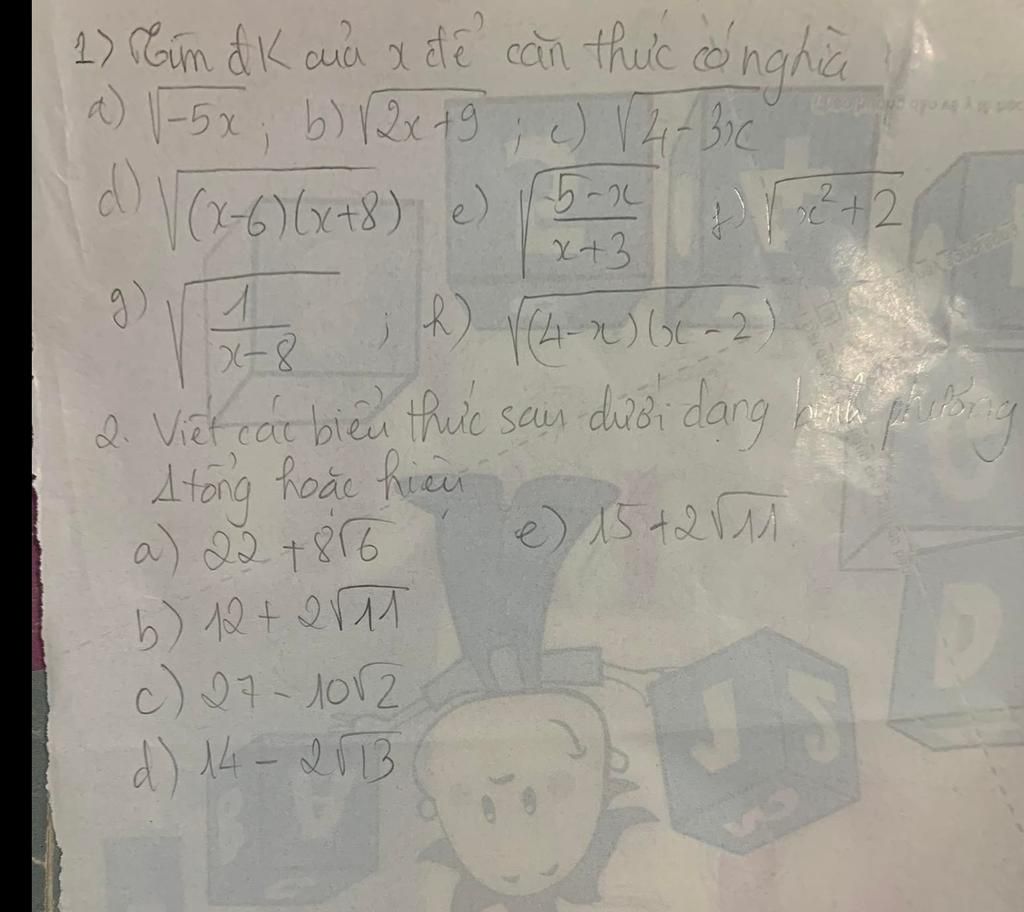 1) Tìm đK của x để căn thức có nghĩa
a) √-5x ; b) √2x+9 ; c) √4-3x
d) √(x-6)(x+8) e) √5-x/x+3 f) √x²+2
g) √1/x-8 ; h) √(4-x)(x-2)
2. Viết các biểu thức sau dưới dạng bình phương
1 tổng hoặc hiệu
a) 22 + 8√6 e) 15 + 2√11
b) 12 + 2√11
c) 27 - 10√2
d) 14 - 2√13